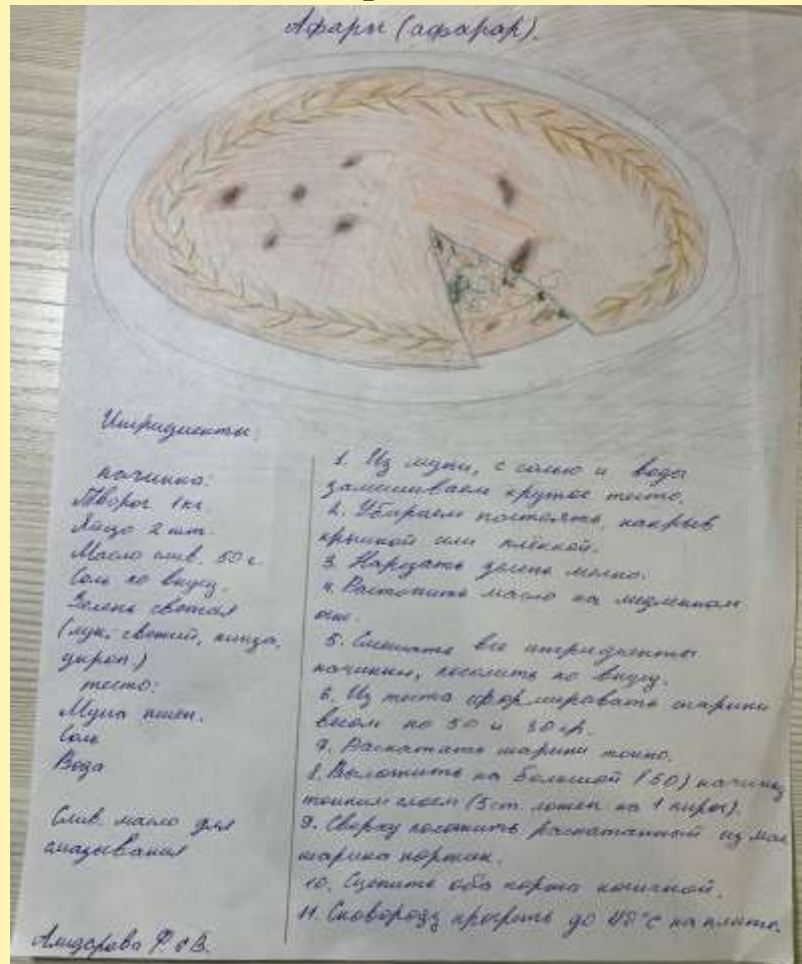 Афары (афарар).
Ингридиенты:
начинка:
Творог 1кг
Яйцо 2 шт.
Масло слив. 50 г.
Соль по вкусу.
Зелень свежая
(лук, свежий, кинза,
укроп.)
тесто:
Мука пшен.
Соль
Вода
Слив. масло для
смазывания
1. Из муки, с солью и воды
замешиваем крутое тесто.
2. Убираем постоять, накрыв
крышкой или плёнкой.
3. Нарезать зелень мелко.
4. Растопить масло на медленном
огне.
5. Смешать все ингридиенты
начинки, посолить по вкусу.
6. Из теста сформировать шарики
весом по 50 и 30 гр.
7. Раскатать шарики тонко.
8. Выложить на большой (50) начинку
тонким слоем (5 ст. ложек на 1 пирог).
9. Сверху положить раскатанный из мал
шарика коржик.
10. Сцепить оба коржа косичкой.
11. Сковороду прогреть до °C на плите.